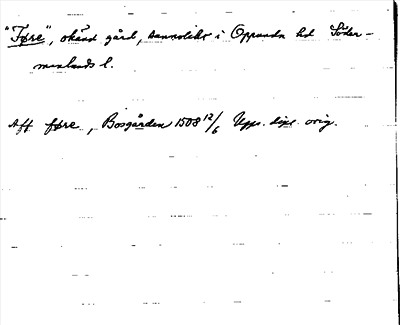 "Føre", okänd gård, sannolikt i Oppunda hd Söder-
manlands l.
Aff føre, Bosgården 1508 12/6 Upps. dipl. orig.